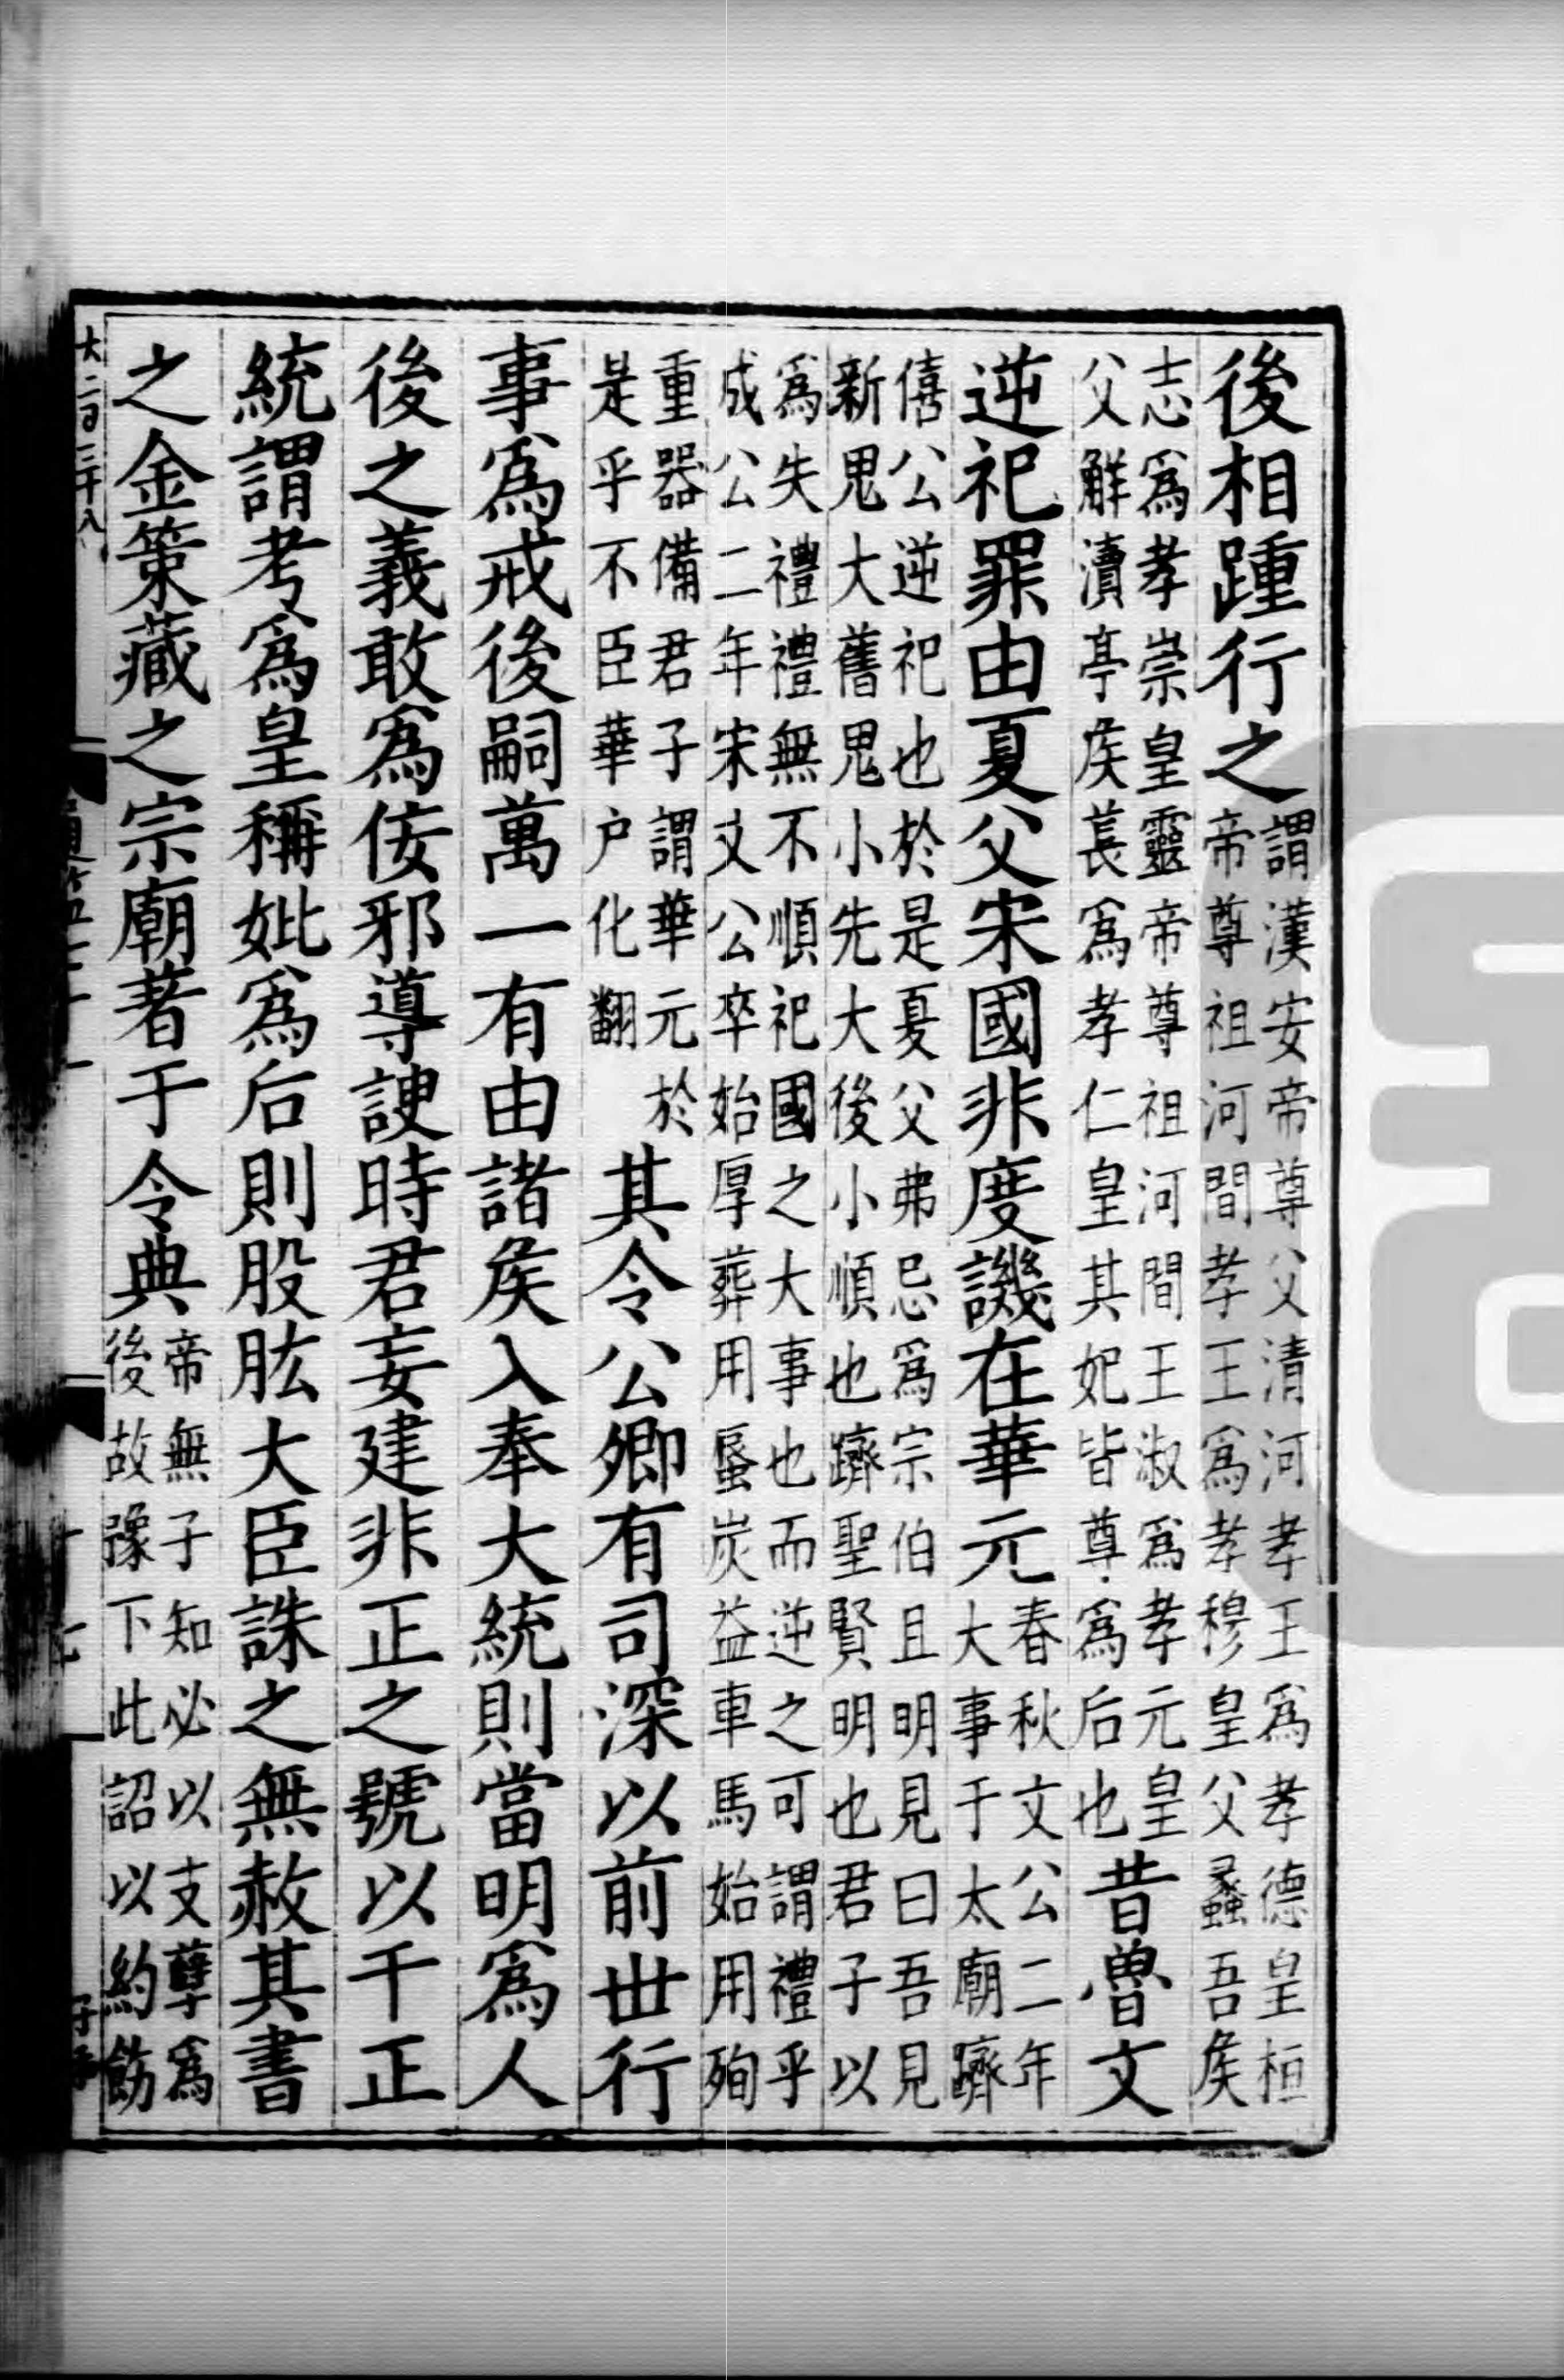 後相踵行之謂漢安帝尊父清河孝王爲孝德皇桓帝尊祖河間孝王爲孝穆皇父蠡吾侯
志爲孝崇皇靈帝尊祖河間王淑爲孝元皇父解瀆亭侯萇爲孝仁皇其妃皆尊爲后也昔魯文
逆祀罪由夏父宋國非度譏在華元春秋文公二年大事于太廟躋
僖公逆祀也於是夏父弗忌爲宗伯且明見曰吾見新鬼大舊鬼小先大後小順也躋聖賢明也君子以
爲失禮禮無不順祀國之大事也而逆之可謂禮乎成公二年宋文公卒始厚葬用蜃炭益車馬始用殉
重器備君子謂華元於是乎不臣華户化翻其令公卿有司深以前世行
事爲戒後嗣萬一有由諸侯入奉大統則當明爲人
後之義敢爲佞邪導諛時君妄建非正之號以干正
統謂考爲皇稱妣爲后則股肱大臣誅之無赦其書
之金策藏之宗廟著于令典帝無子知必以支孽爲後故豫下此詔以約飭
大二百三十八